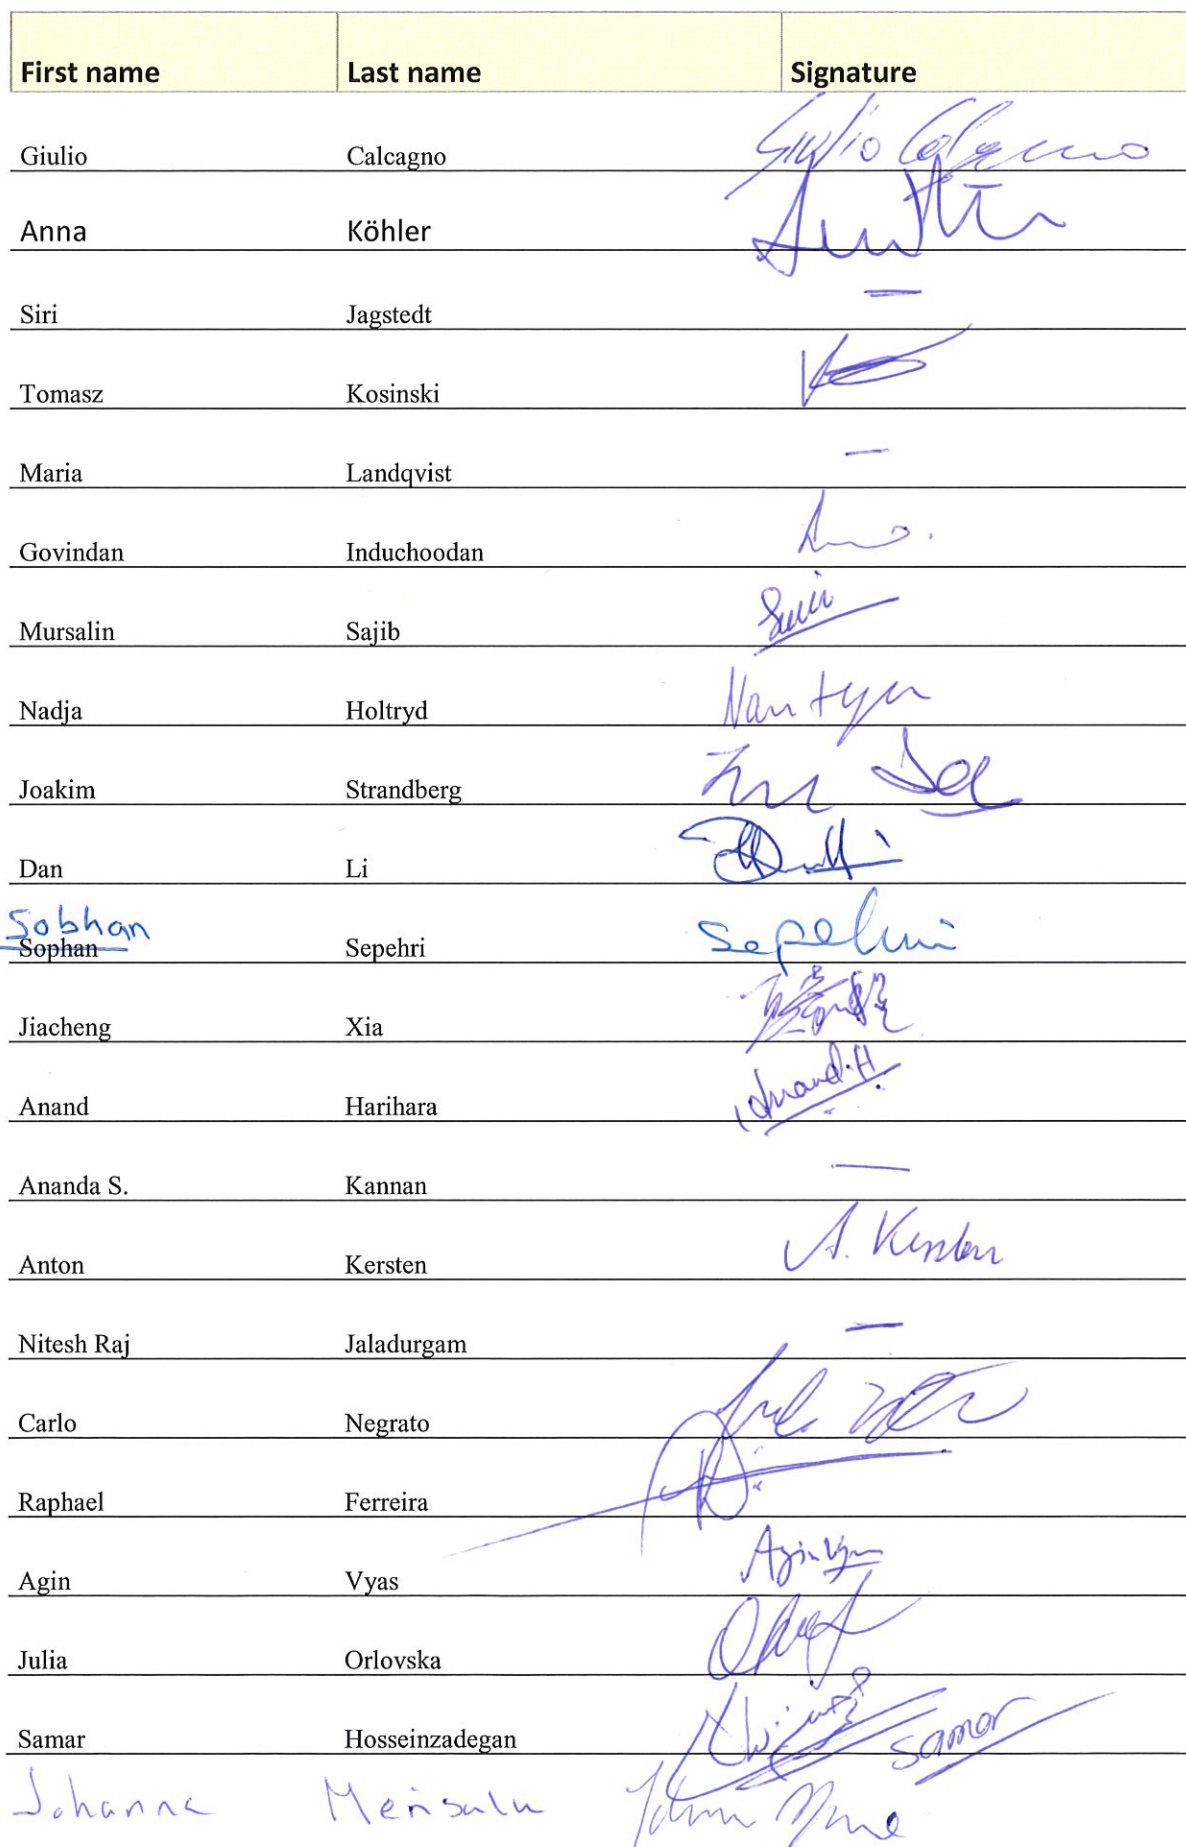 First name Last name Signature
Giulio Calcagno Giulio Calcagno
Anna Köhler
Siri Jagstedt —
Tomasz Kosinski
Maria Landqvist —
Govindan Induchoodan
Mursalin Sajib
Nadja Holtryd
Joakim Strandberg
Dan Li
Sobhan
Sophan Sepehri Sepehri
Jiacheng Xia
Anand Harihara Anand.H
Ananda S. Kannan —
Anton Kersten A. Kersten
Nitesh Raj Jaladurgam —
Carlo Negrato
Raphael Ferreira
Agin Vyas Agin Vyas
Julia Orlovska
Samar Hosseinzadegan Samar
Johanna Merisalu